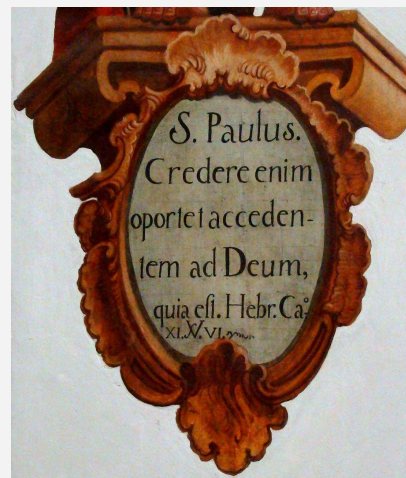 S. Paulus.
Credere enim
oportet acceden-
tem ad Deum,
quia est. Hebr. Ca.
XI. V. VI.